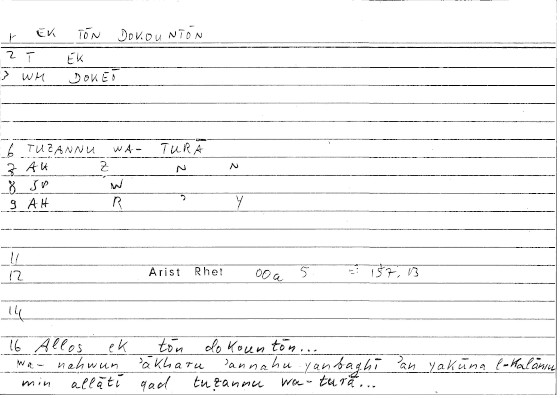 1 EK TŌN DOKOUNTŌN
2 T EK
3 WM DOKEŌ
6 TUZANNU WA- TURĀ
7 AU Z N N
8 SP W
9 AH R ʾ Y
11
12 Arist Rhet 00a 5 = 157, 13
14
16 Allos ek tōn dokountōn...
wa- naḥwun ʾākharu ʾannahu yanbaghī ʾan yakūna l-kalāmu
min allātī qad tuzannu wa-turā...